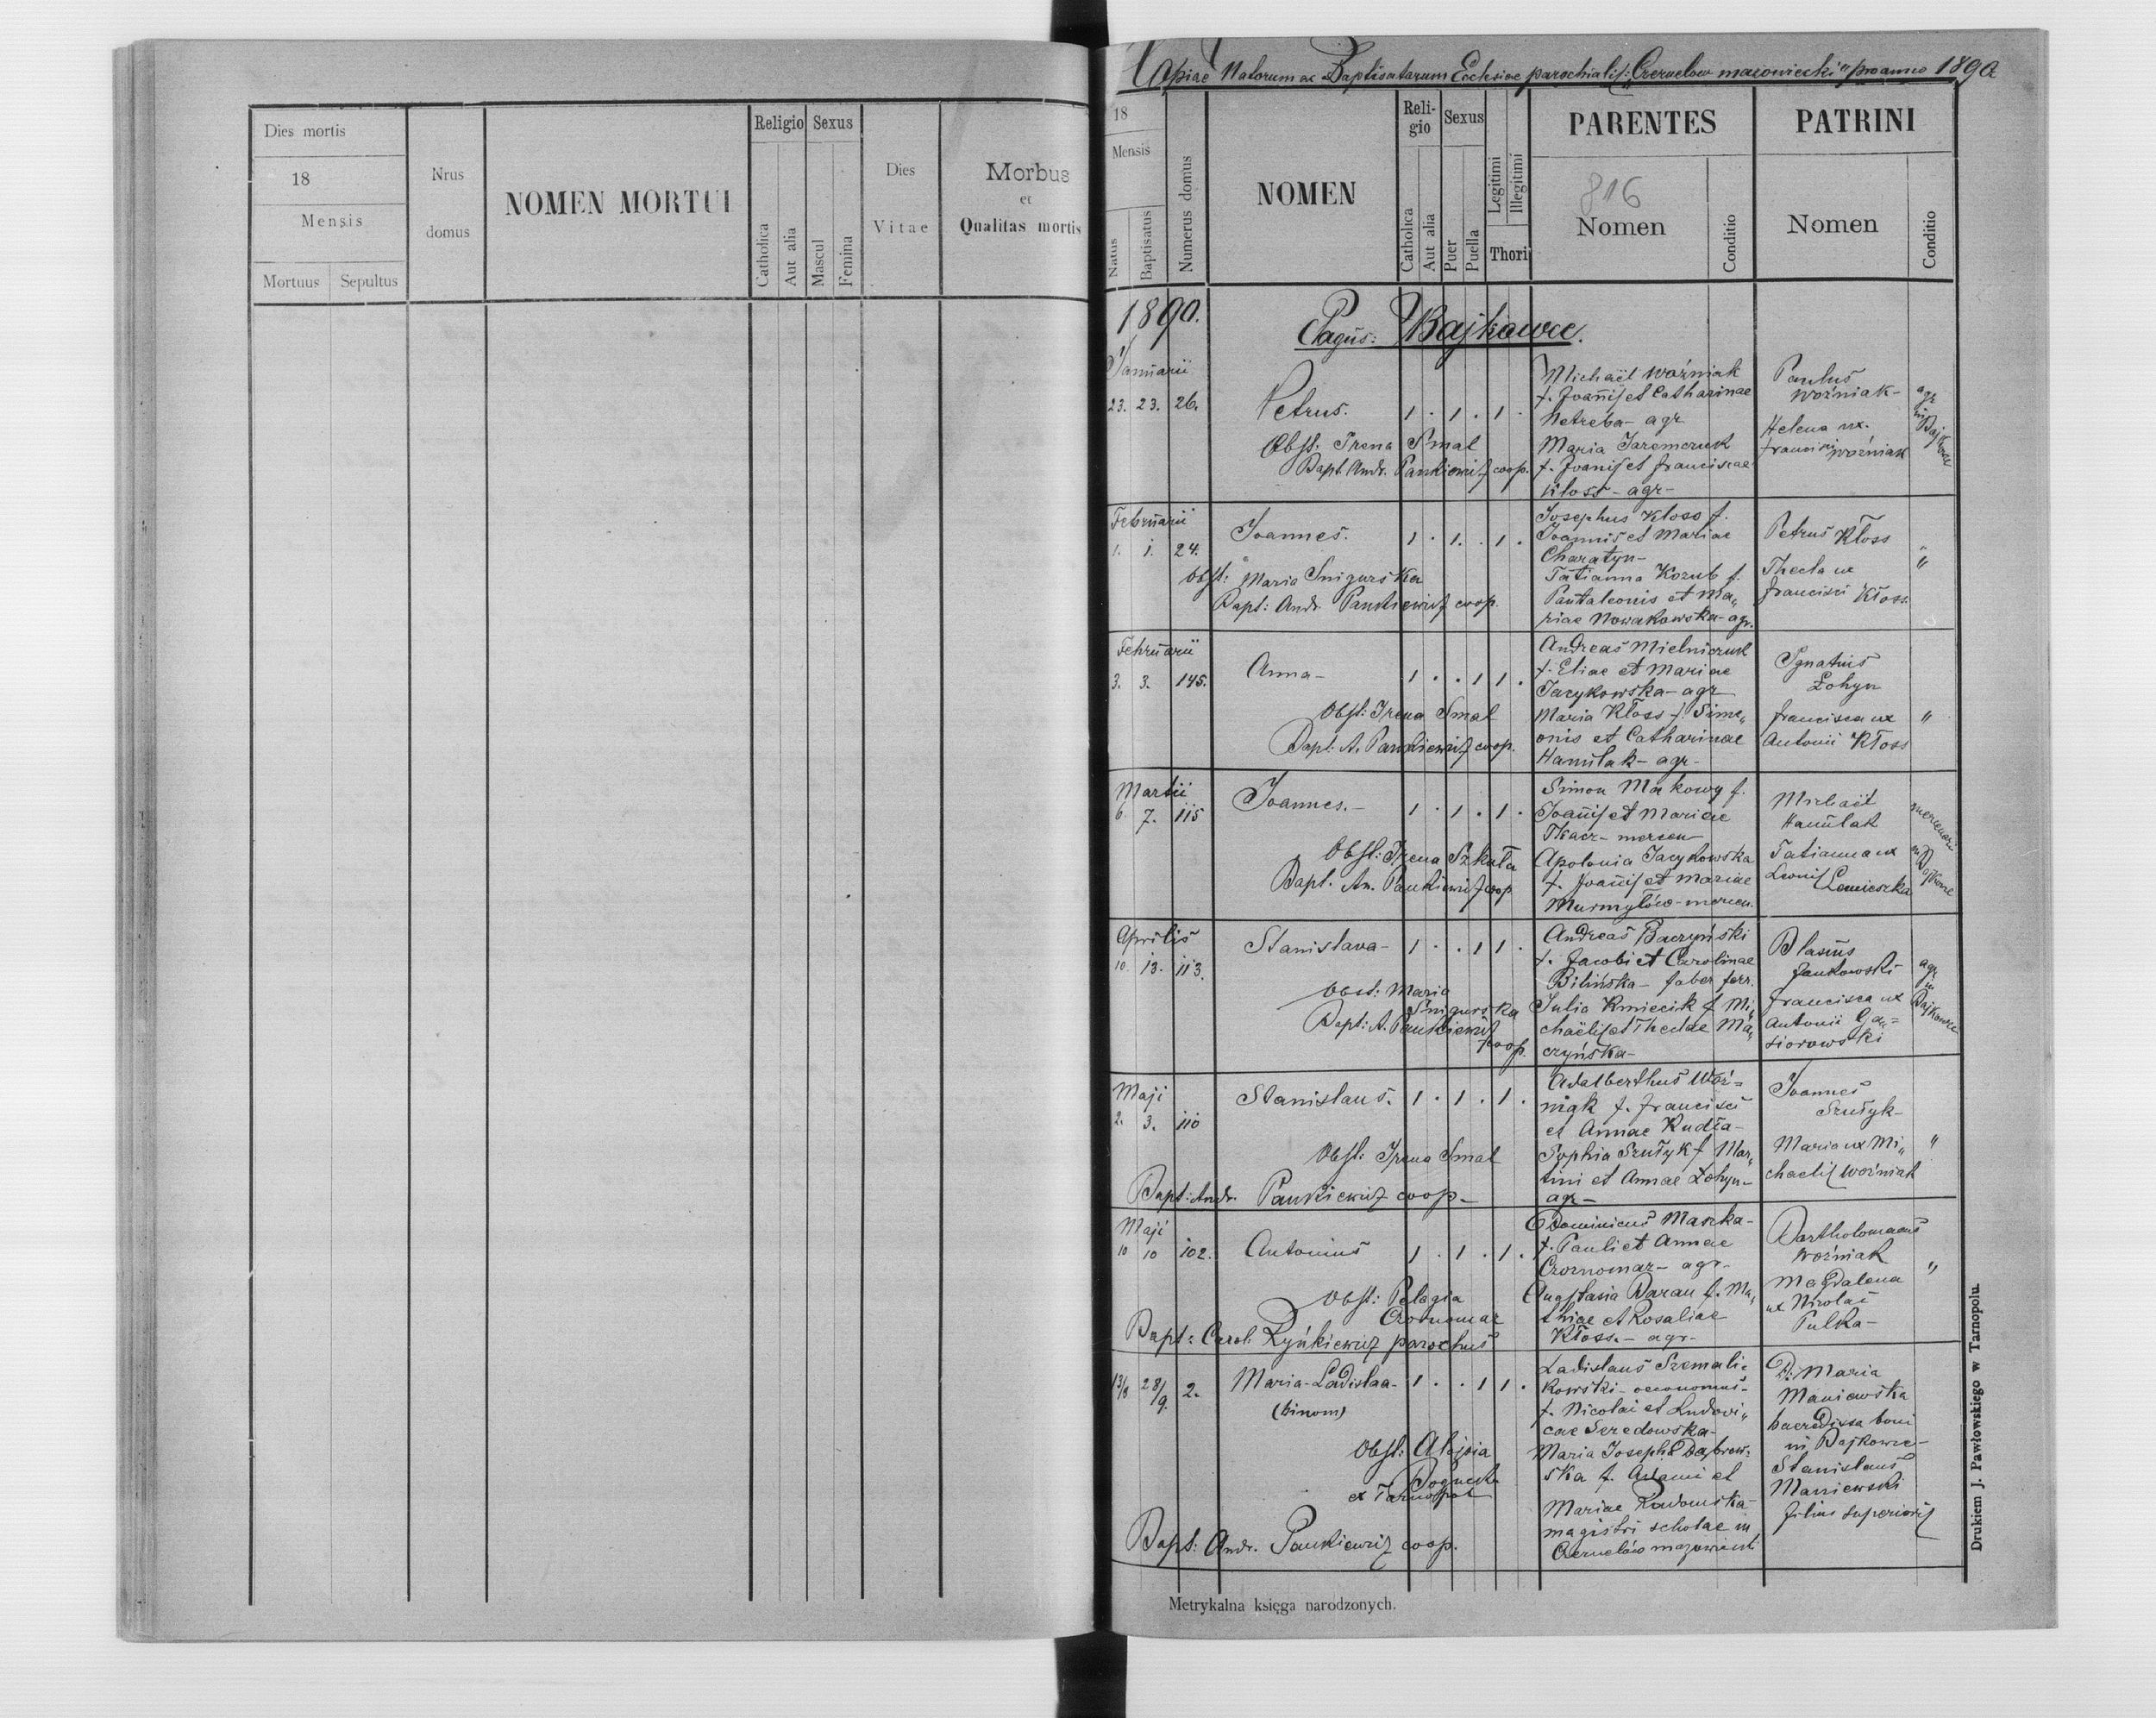 Dies mortis
18
Mensis
Mortuus Sepultus
Nrus
domus
NOMEN MORTUI
Religio Sexus
Catholica
Aut alia
Mascul
Femina
Dies
Vitae
Morbus
et
Qualitas mortis
Copiae Natorum ac Baptisatarum Ecclesiae parochialis: "Czernelow mazowiecki" pro anno 1890
18
Mensis
Natus
Baptisatus
Numerus domus
NOMEN
Reli-
gio
Sexus
Catholica
Aut alia
Puer
Puella
Legitimi
Illegitimi
Thori
PARENTES
816
Nomen
Conditio
PATRINI
Nomen
Conditio
1890.
Pagus: Bajkowce.
Januarii
23. 23. 26.
Petrus.
1 . 1 . 1 .
Obst. Irena Smal
Bapt. Andr. Pankiewicz coop.
Michaël Woźniak
f. Joañis et Catharinae
Netreba - agr
Maria Jaremczuk
f. Joanis et Franciscae
Kloss - agr -
Paulus
Woźniak -
Helena ux.
Francisci Woźniak
agr
in
Bajkowce
Februarii
1. 1. 24.
Joannes.
1 . 1 . 1 .
Obst: Maria Snigurska
Bapt: Andr. Pankiewicz coop.
Josephus Kloss f.
Joannis et Mariae
Charatyn -
Tatianna Kozub f.
Pantaleonis et Ma„
riae Nowakowska - agr.
Petrus Kłoss
Thecla ux
Francisci Kłoss.
"
Februarii
3. 3. 145.
Anna -
1 . . 1 1 .
Obst: Irena Smal
Bapt: A. Pankiewicz coop.
Andreas Mielniczuk
f. Eliae et Mariae
Jacykowska - agr
Maria Kłoss f. Sime„
onis et Catharinae
Hamulak - agr -
Ignatius
Łohyn
Francisca ux
Antonii Kłoss
"
Martii
6 7. 115
Joannes. -
1 . 1 . 1 .
Obst: Irena Szkuta
Bapt. An. Pankiewicz coop
Simon Makowy f.
Joañis et Mariae
Tkacz - mercen
Apolonia Jacykowska
f. Joañis et Mariae
Murmyłów - mercen.
Michaël
Hamulak
Tatianna ux
Leonis Lemieszka
mercenarii
in Bajkowce
Aprilis
10. 13. 113.
Stanislava -
1 . . 1 1 .
Obst: Maria
Snigurska
Bapt: A. Pankiewicz
coop.
Andreas Baczyński
f. Jacobi et Carolinae
Bilińska - faber ferr.
Julia Kmiecik f. Mi„
chaëlis et Theclae Ma„
czyńska -
Blasius
Jankowski
Francisca ux
Antonii Gą„=
siorowski
agr
in
Bajkowce
Maji
2. 3. 110
Stanislaus.
1 . 1 . 1 .
Obst: Irena Smal
Bapt: Andr. Pankiewicz coop. -
Adalberthus Woź=
niak f. Francisci
et Annae Kudła -
Sophia Szułyk f. Mar„
tini et Annae Łohyn -
agr -
Joannes
Szułyk -
Maria ux Mi„
chaelis Woźniak
"
Maji
10 10 102.
Antonius
1 . 1 . 1 .
Obst: Pelagia
Czornomaz
Bapt: Carol: Ryńkiewicz parochus
Dominicus Maszka -
f. Pauli et Annae
Czornomaz - agr -
Anastasia Baran f. Ma„
thiae et Rosaliae
Kłoss. - agr -
Bartholomaeus
Woźniak
Magdalena
ux Nicolai
Pulka -
"
13/8 28/9. 2.
Maria - Ladislaa -
(binom)
1 . . 1 1 .
Obst: Alojsia
ex Tarnopol
Bapt: Andr. Pankiewicz coop.
Ladislaus Szmali=
kowski - oeconomus -
f. Nicolai et Ludovi„
cae Seredowska -
Maria Josepha Dąbrow„
ska f. Adami et
Mariae Radomska -
magistri scholae in
Czernelów mazowiecki
D: Maria
Maniewska
haeredissa boni
in Bajkowce -
Stanislaus
Maniewski
filius superioris
Drukiem J. Pawłowskiego w Tarnopolu.
Metrykalna księga narodzonych.